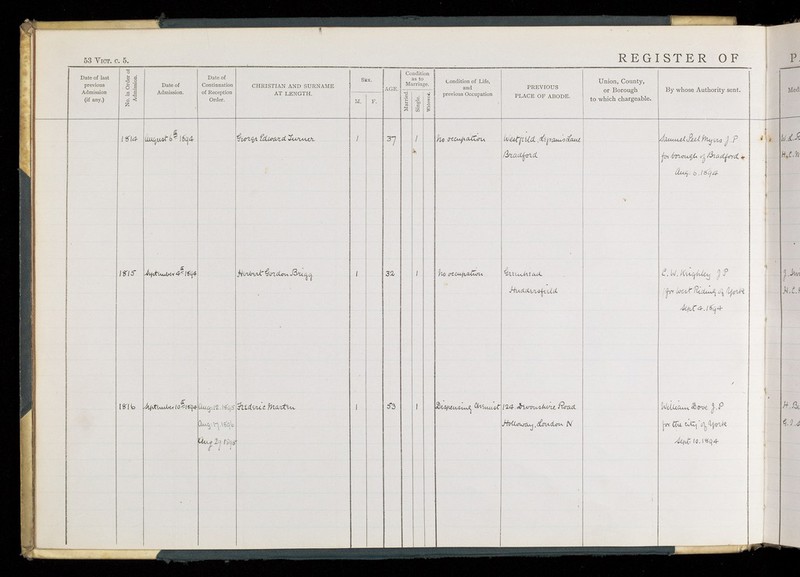 53 VICT. c. 5.
REGISTER OF
P
Date of last previous Admission (if any.)
No. in Order of Admission.
Date of Admission.
Date of Continuation of Reception Order.
CHRISTIAN AND SURNAME AT LENGTH.
SEX.
M. F.
AGE
Condition as to Marriage.
Married. Single. Widowed.
Condition of Life, and previous Occupation
PREVIOUS PLACE OF ABODE.
Union, County, or Borough to which chargeable.
By whose Authority sent.
1814 August 6th 1894 George Edward Turner 1 37 1 No occupation Westfield
Bradford
Samuel Peel Myers J.P
for borough of Bradford
Aug. 6. 1894
1815 September 4th 1894 Herbert Gordon Brigg 1 32 1 No occupation Greenhead
Huddersfield
C. W. Wrighley J P
for West Riding of York
Sept 4. 1894
1816 September 10th 1894 Aug 12 1895 Frederic Martin 1 53 1 Dispensing Chemist 124 Devonshire Road
Holloway, London N
William Dove J.P
for the city of York
Sept. 10. 1894